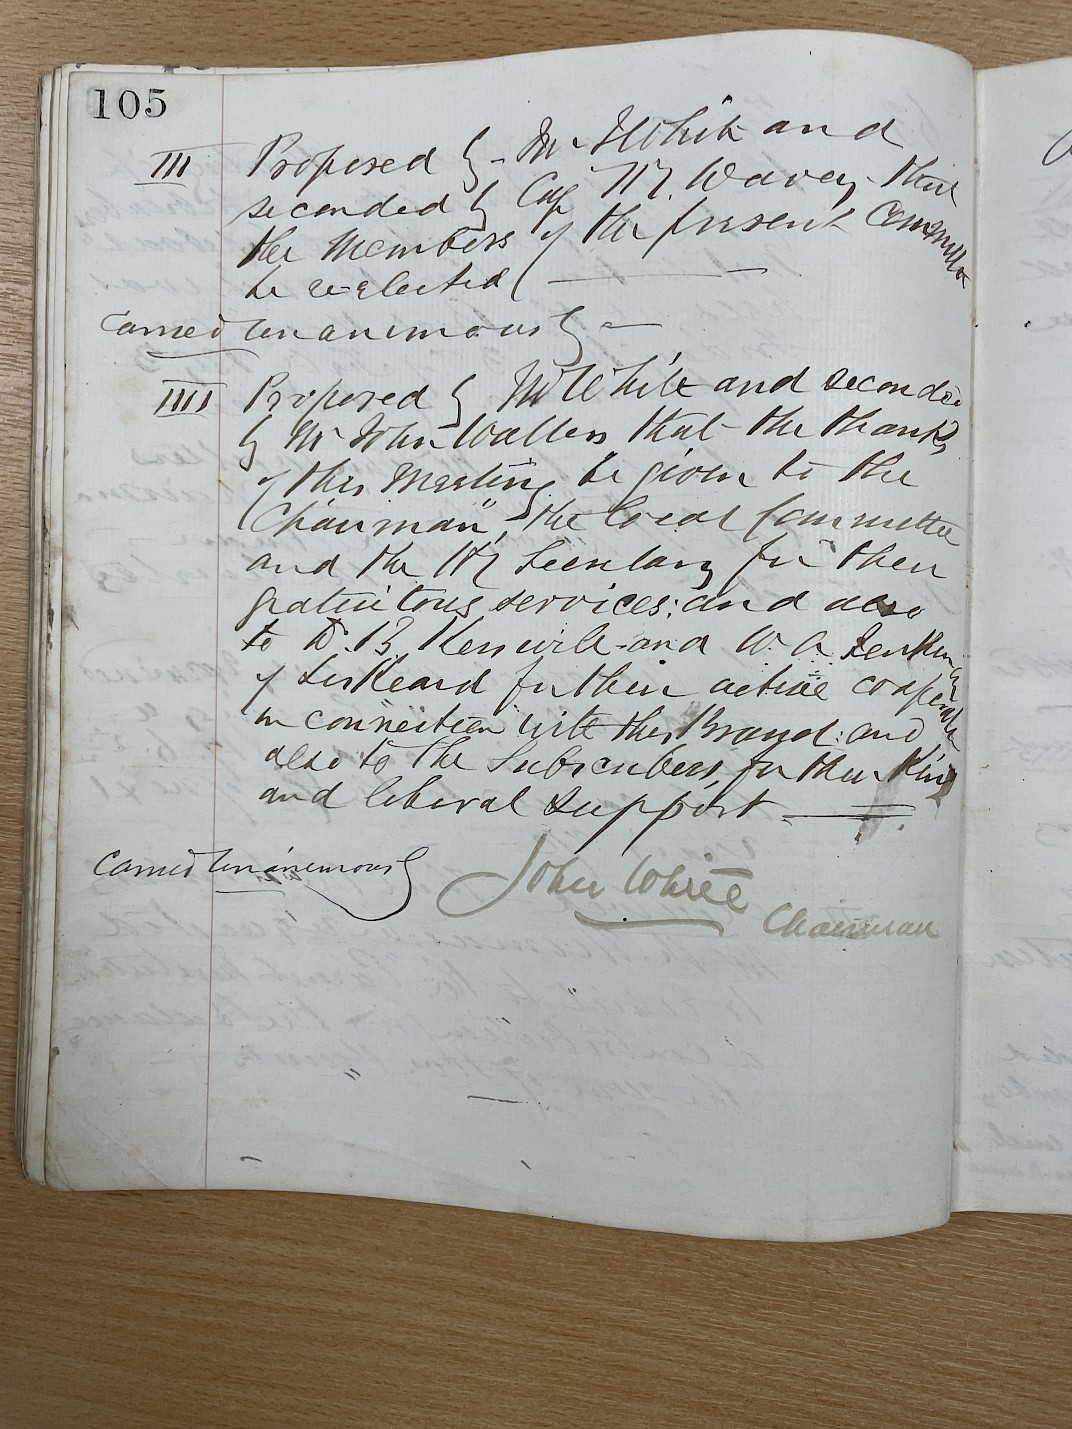 105
III Proposed by Mr J White and
seconded by Cap that
the Members of the present Committee
be re-elected
Carried Unanimously
IIII Proposed by Mr White and seconded
by Mr John Walters that the thanks
of this Meeting be given to the
Chairman, the Local Committee
and the Secretary for their
gratuitous services: and also
to and W. A Jenkin
of Liskeard for their active cooperation
in connection with this Brand: and
also to the Subscribers, for their Kind
and liberal support
Carried Unanimously
John White
Chairman